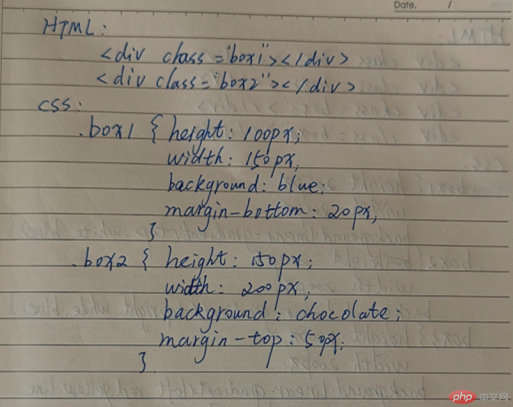 Date. /
HTML:
<div class="box1"></div>
<div class="box2"></div>
css:
.box1 { height: 100px;
width: 150px;
background: blue;
margin-bottom: 20px;
}
.box2 { height: 150px;
width: 200px;
background: chocolate;
margin-top: 50px;
}
php 中文网